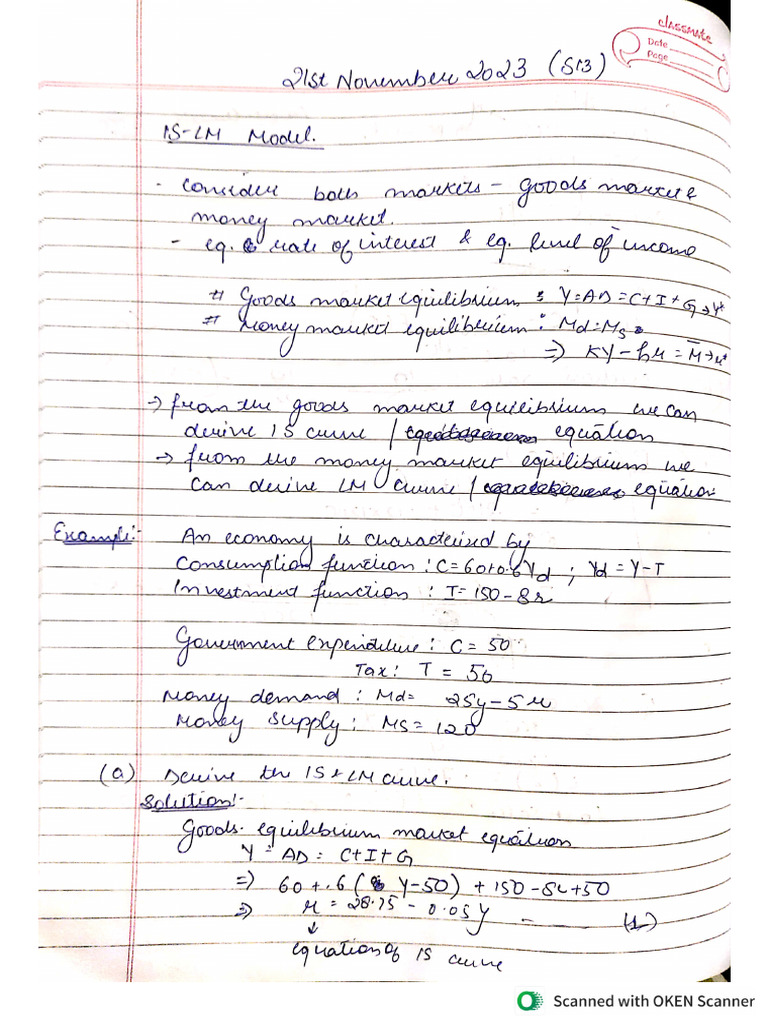 classmate
Date
Page
21st November 2023 (S13)
IS-LM Model.
- Consider both markets - goods market &
money market.
- eq. rate of interest & eq. level of income
# Goods market equilibrium : Y=AD=C+I+G→Y*
# Money market equilibrium : Md=Ms
=> KY-hr = M̄→r*
→ from the goods market equilibrium we can
derive IS curve / equation
→ from the money market equilibrium we
can derive LM curve / equation
Example:- An economy is characterised by
Consumption function : C=60+0.6Yd ; Yd = Y-T
Investment function : I=150-8r
Government expenditure : C = 50
Tax : T = 50
Money demand : Md= 25y-5r
Money supply : MS=120
(a) Derive the IS & LM curve.
Solution:-
Goods equilibrium market equation
Y = AD = C+I+G
=> 60+.6(Y-50)+150-8r+50
=> r = 28.75 - 0.05Y - - (1)
↓
equation of IS curve
Scanned with OKEN Scanner